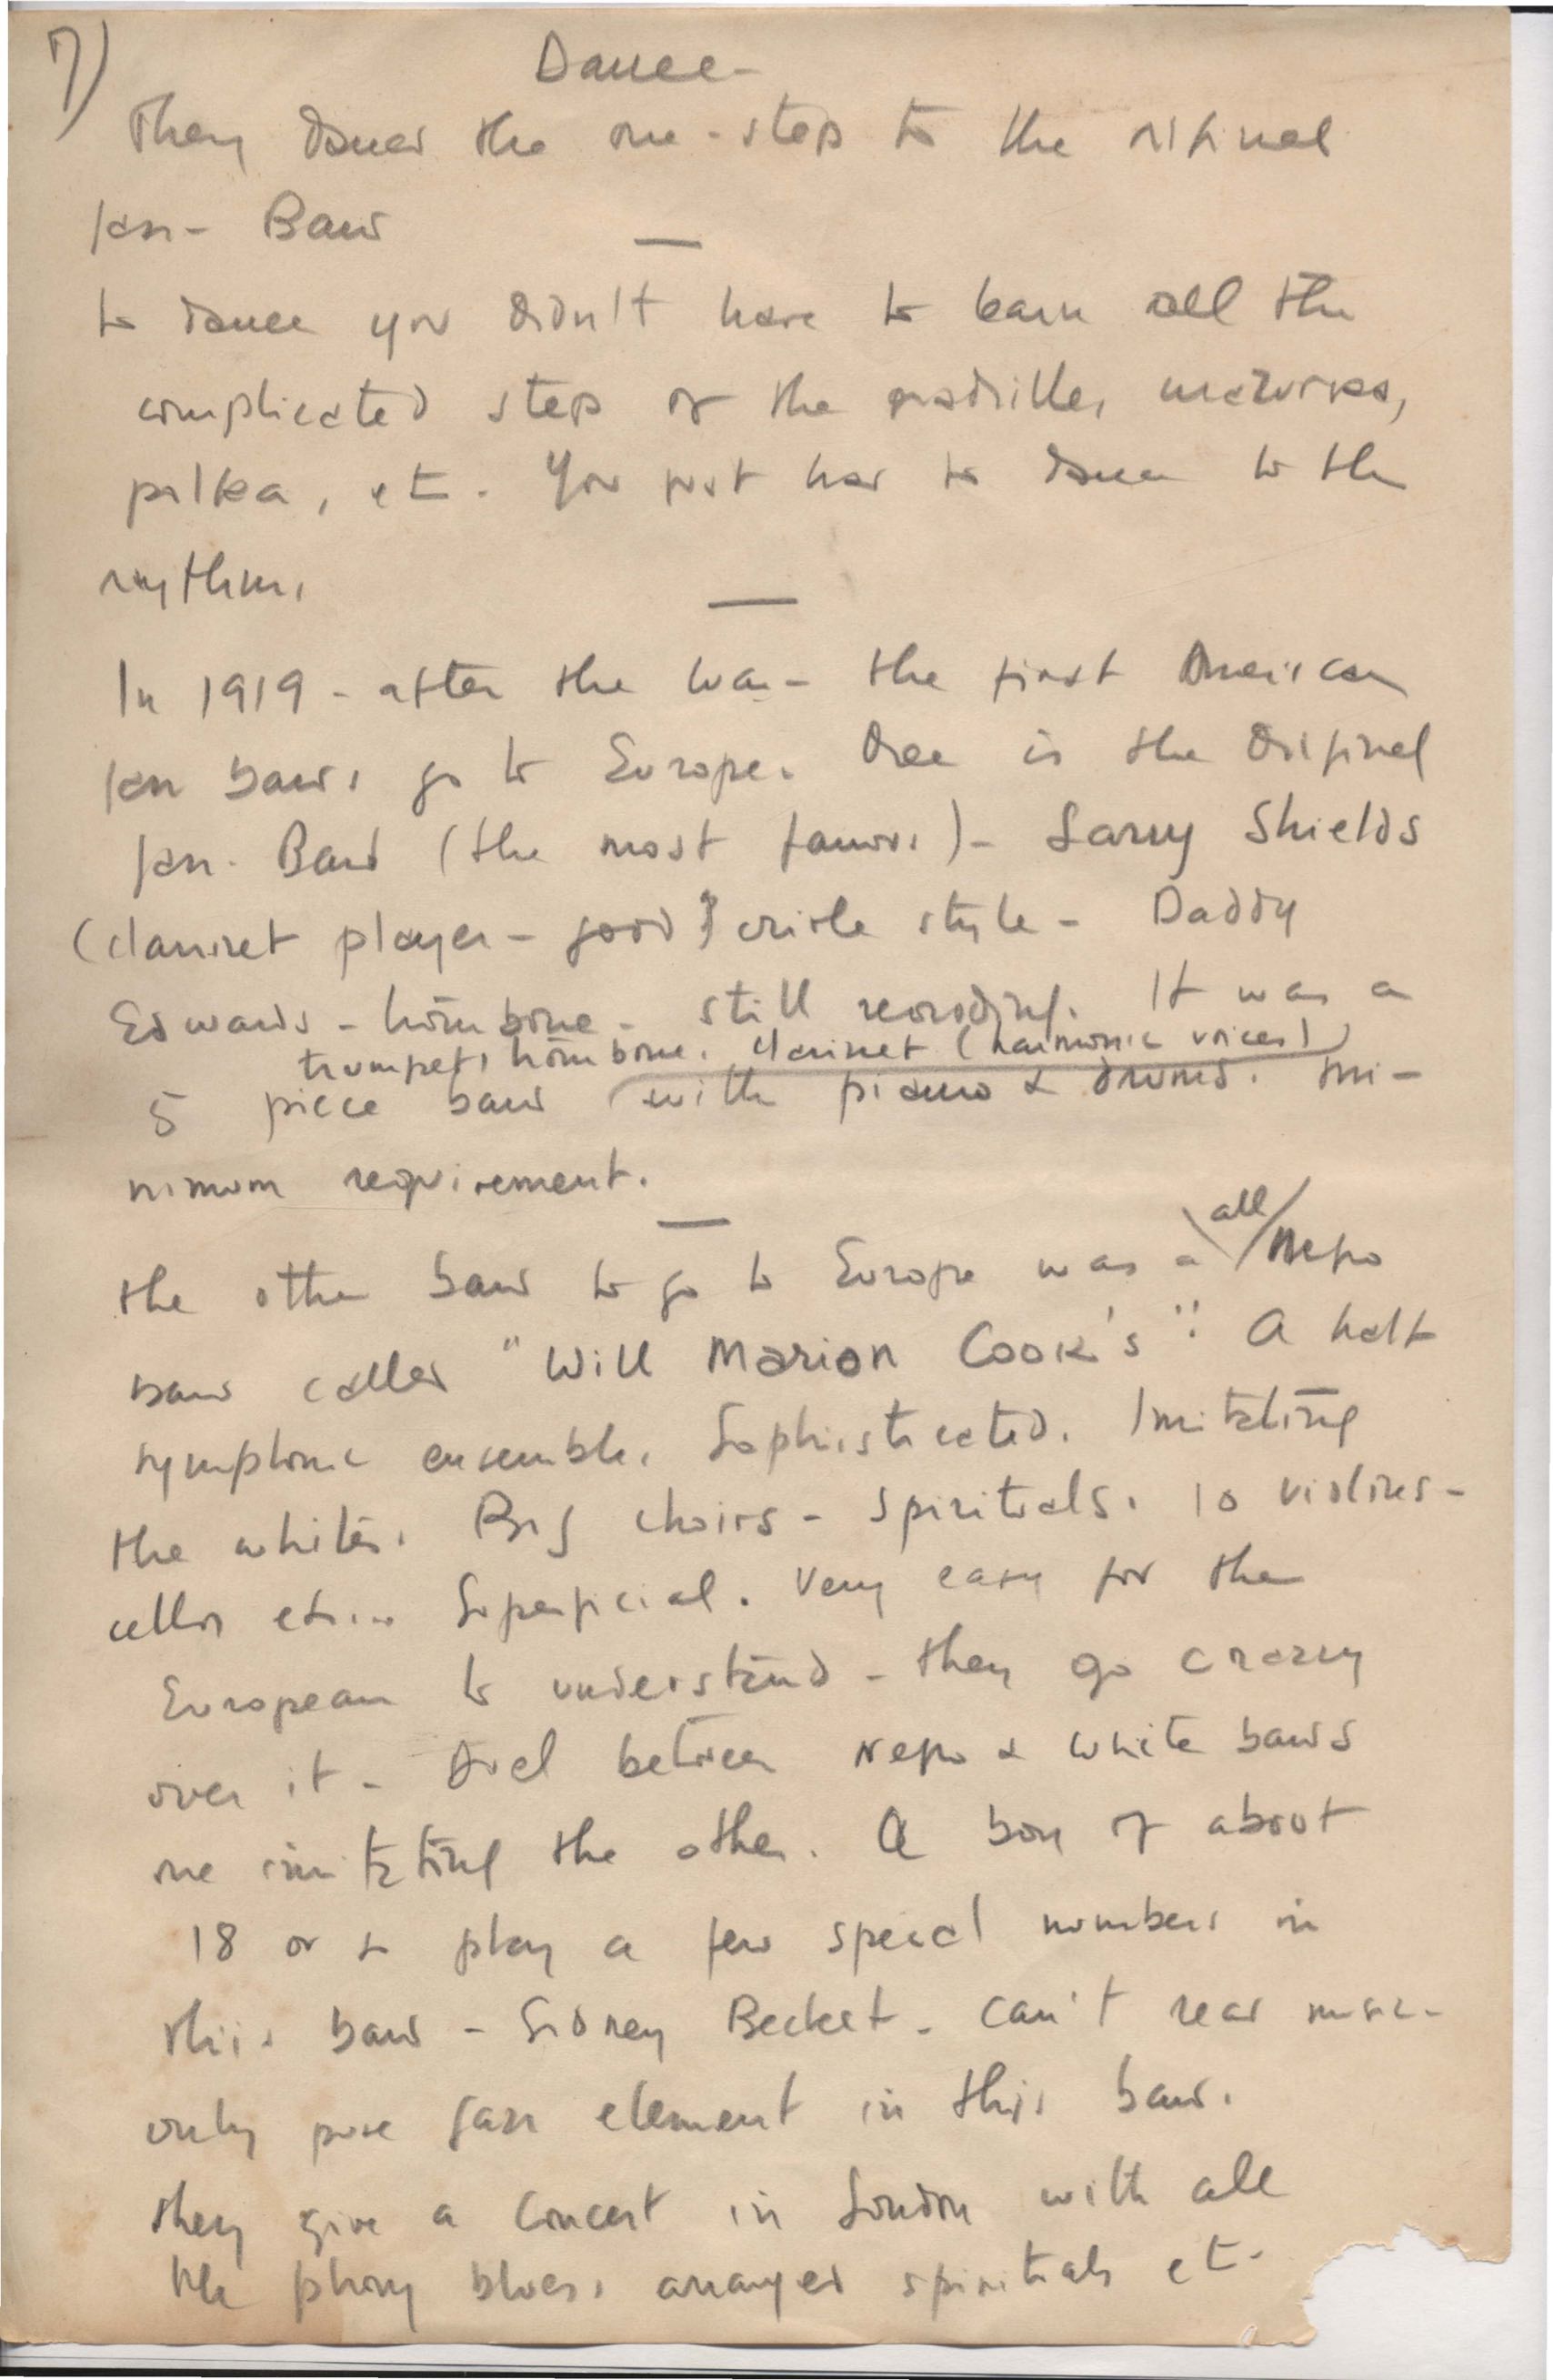 7)
Dance -
They danced the one-step to the original
Jazz - Band
to dance you didn't have to learn all the
complicated steps of the quadrille, mazurka,
polka, etc. You just had to dance to the
rythm.
In 1919 - after the war - the first American
Jazz bands go to Europe. One is the Original
Jazz. Band (the most famous) - Larry Shields
(clarinet player - good creole style - Daddy
Edwards - trombone - still recording. It was a
trumpet, trombone, clarinet (harmonic voices)
5 piece band with piano & drums. mi-
nimum requirement.
the other band to go to Europe was a all Negro
band called "Will Marion Cook's". A half
symphonic ensemble. Sophisticated. Imitating
the whites. Big choirs - spirituals. 10 violins -
cellos etc... Superficial. Very easy for the
European to understand - they go crazy
over it - Duel between Negro & white bands
one imitating the other. A boy of about
18 or so play a few special numbers in
this band - Sidney Becket - can't read music -
only pure jazz element in this band.
they give a concert in London with all
the phony blues, arranged spirituals etc-